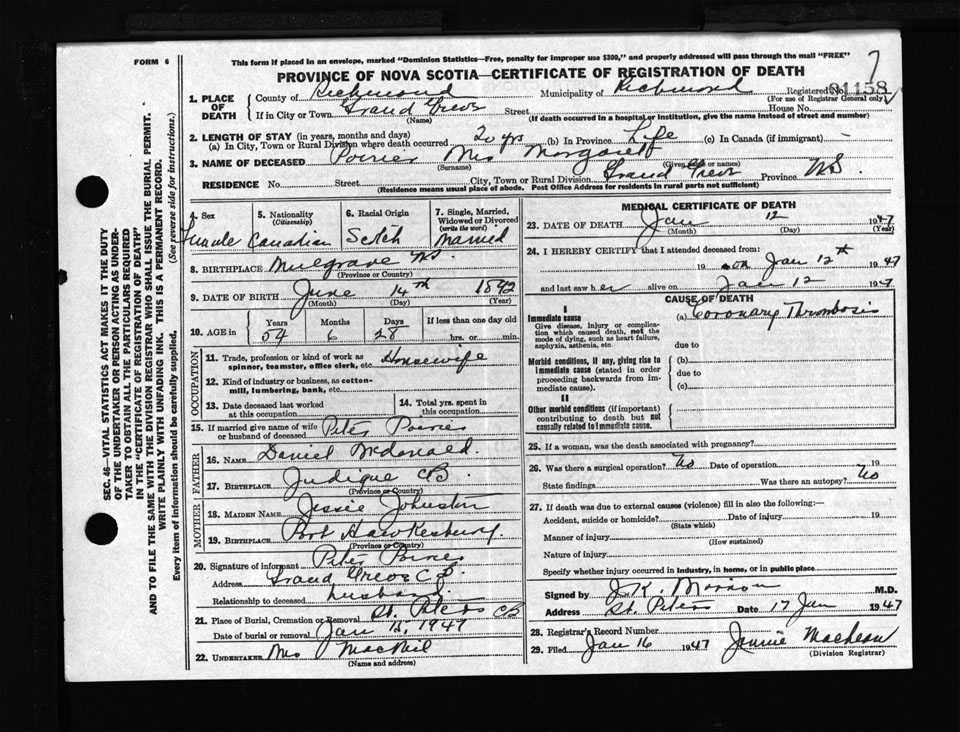 FORM 6
This form if placed in an envelope, marked "Dominion Statistics—Free, penalty for improper use $300," and properly addressed will pass through the mail "FREE"
7
PROVINCE OF NOVA SCOTIA—CERTIFICATE OF REGISTRATION OF DEATH
1. PLACE OF DEATH
County of Richmond Municipality of Richmond Registered No. 01158
(For use of Registrar General only)
If in City or Town Grand Greve Street House No.
(Name) (If death occurred in a hospital or institution, give the name instead of street and number)
2. LENGTH OF STAY (in years, months and days)
(a) In City, Town or Rural Division where death occurred 20 yrs (b) In Province Life (c) In Canada (if immigrant) -
3. NAME OF DECEASED Poirier Mrs Margaret
(Surname) (Given name or names)
RESIDENCE No. Street City, Town or Rural Division Grand Greve Province N.S.
(Residence means usual place of abode. Post Office Address for residents in rural parts not sufficient)
4. Sex
Female
5. Nationality (Citizenship)
Canadian
6. Racial Origin
Scotch
7. Single, Married, Widowed or Divorced (write the word)
Married
8. BIRTHPLACE Mulgrave N.S.
(Province or Country)
9. DATE OF BIRTH June 14th 1892
(Month) (Day) (Year)
10. AGE in
Years Months Days If less than one day old
54 6 28 hrs. or min.
OCCUPATION
11. Trade, profession or kind of work as spinner, teamster, office clerk, etc. Housewife
12. Kind of industry or business, as cotton-mill, lumbering, bank, etc.
13. Date deceased last worked at this occupation
14. Total yrs. spent in this occupation
15. If married give name of wife or husband of deceased Peter Poirier
FATHER
16. NAME Daniel McDonald
17. BIRTHPLACE Judique CB
(Province or Country)
MOTHER
18. MAIDEN NAME Jessie Johnston
19. BIRTHPLACE Port Hawkesbury
(Province or Country)
20. Signature of informant Peter Poirier
Address Grand Greve C.B.
Relationship to deceased husband
21. Place of Burial, Cremation or Removal St. Peters CB
Date of burial or removal Jan 15, 1947
22. UNDERTAKER Mrs MacNeil
(Name and address)
MEDICAL CERTIFICATE OF DEATH
23. DATE OF DEATH Jan 12 1947
(Month) (Day) (Year)
24. I HEREBY CERTIFY that I attended deceased from:
19 on Jan 12th 1947
and last saw her alive on Jan 12 1947
CAUSE OF DEATH
I
Immediate cause
Give disease, injury or complication which caused death, not the mode of dying, such as heart failure, asphyxia, asthenia, etc.
(a) Coronary Thrombosis
due to
Morbid conditions, if any, giving rise to immediate cause (stated in order proceeding backwards from immediate cause).
(b)
due to
(c)
II
Other morbid conditions (if important) contributing to death but not causally related to immediate cause.
25. If a woman, was the death associated with pregnancy?
26. Was there a surgical operation? No Date of operation 19
State findings Was there an autopsy? No
27. If death was due to external causes (violence) fill in also the following:—
Accident, suicide or homicide? Date of injury 19
(State which)
Manner of injury
(How sustained)
Nature of injury
Specify whether injury occurred in industry, in home, or in public place
Signed by J.K. M.D.
Address St. Peters Date 17 Jan 1947
28. Registrar's Record Number
29. Filed Jan 16 1947 Jennie MacLean
(Division Registrar)
SEC. 46—VITAL STATISTICS ACT MAKES IT THE DUTY
OF THE UNDERTAKER OR PERSON ACTING AS UNDER-
TAKER TO OBTAIN ALL THE PARTICULARS REQUIRED
IN THE "CERTIFICATE OF REGISTRATION OF DEATH"
AND TO FILE THE SAME WITH THE DIVISION REGISTRAR WHO SHALL ISSUE THE BURIAL PERMIT.
WRITE PLAINLY WITH UNFADING INK. THIS IS A PERMANENT RECORD.
Every item of information should be carefully supplied. (See reverse side for instructions.)